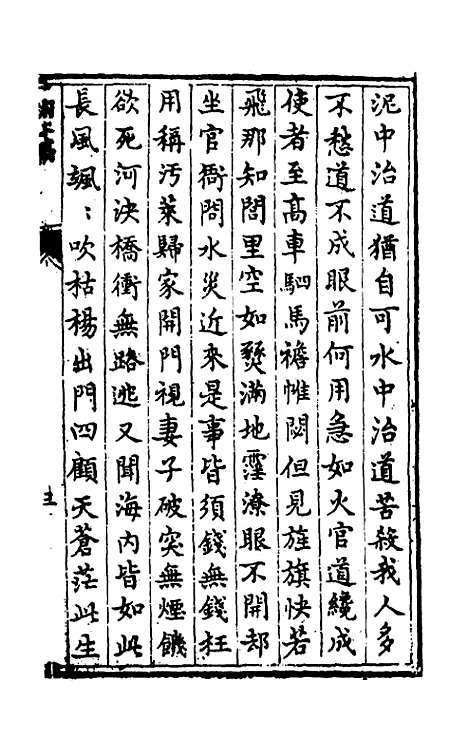 泥中治道猶自可水中治道苦殺我人多
不愁道不成眼前何用急如火官道纔成
使者至高車駟馬襜帷閟但見旌旗快若
飛那知閭里空如燹滿地霪潦眼不開却
坐官衙問水災近來是事皆須錢無錢枉
用稱汚萊歸家開門視妻子破突無煙饑
欲死河決橋衝無路逃又聞海內皆如此
長風颯〻吹枯楊出門四顧天蒼茫此生